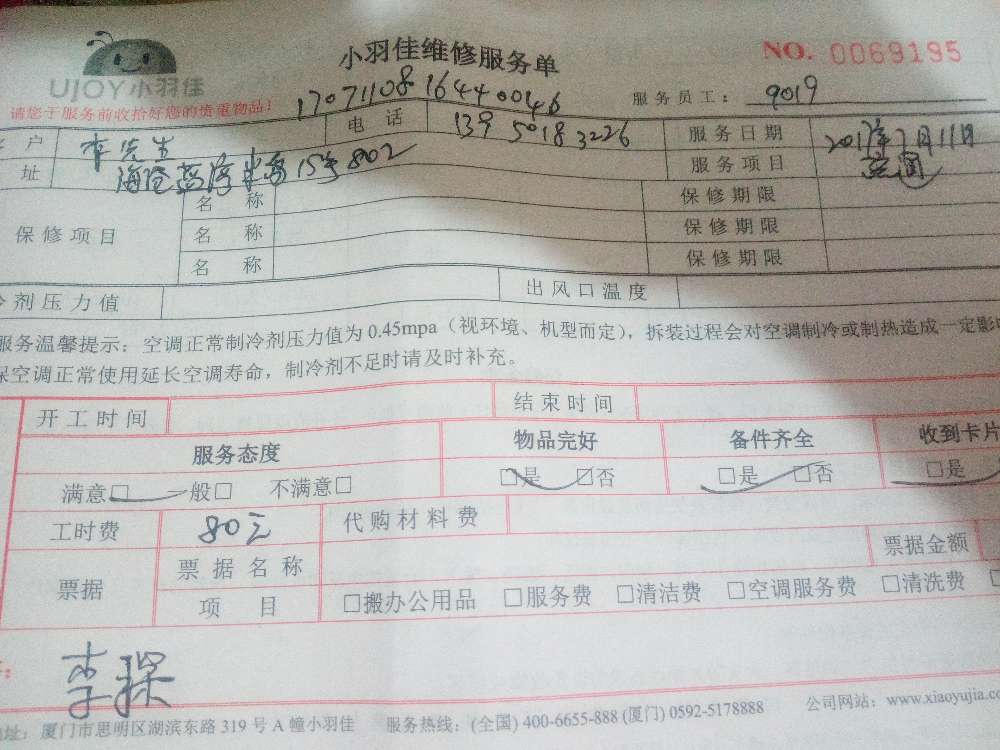 小羽佳维修服务单
NO. 0069195
UJOY小羽佳
请您于服务前收拾好您的贵重物品!
17071108164440046
服务员工: 9019
户 李先生 电话 13950183226 服务日期 2017年7月11日
址 海沧蓝湾半岛15号802 服务项目 空调
保修项目
名称 保修期限
名称 保修期限
名称 保修期限
剂压力值 出风口温度
服务温馨提示: 空调正常制冷剂压力值为0.45mpa(视环境、机型而定), 拆装过程会对空调制冷或制热造成一定影
保空调正常使用延长空调寿命, 制冷剂不足时请及时补充。
开工时间 结束时间
服务态度 物品完好 备件齐全 收到卡片
满意□ 一般□ 不满意□ □是 □否 □是 □否 □是
工时费 80元 代购材料费
票据 票据名称 票据金额
项目 □搬办公用品 □服务费 □清洁费 □空调服务费 □清洗费
地址: 厦门市思明区湖滨东路319号A幢小羽佳 服务热线: (全国) 400-6655-888 (厦门) 0592-5178888 公司网站: www.xiaoyujia.co